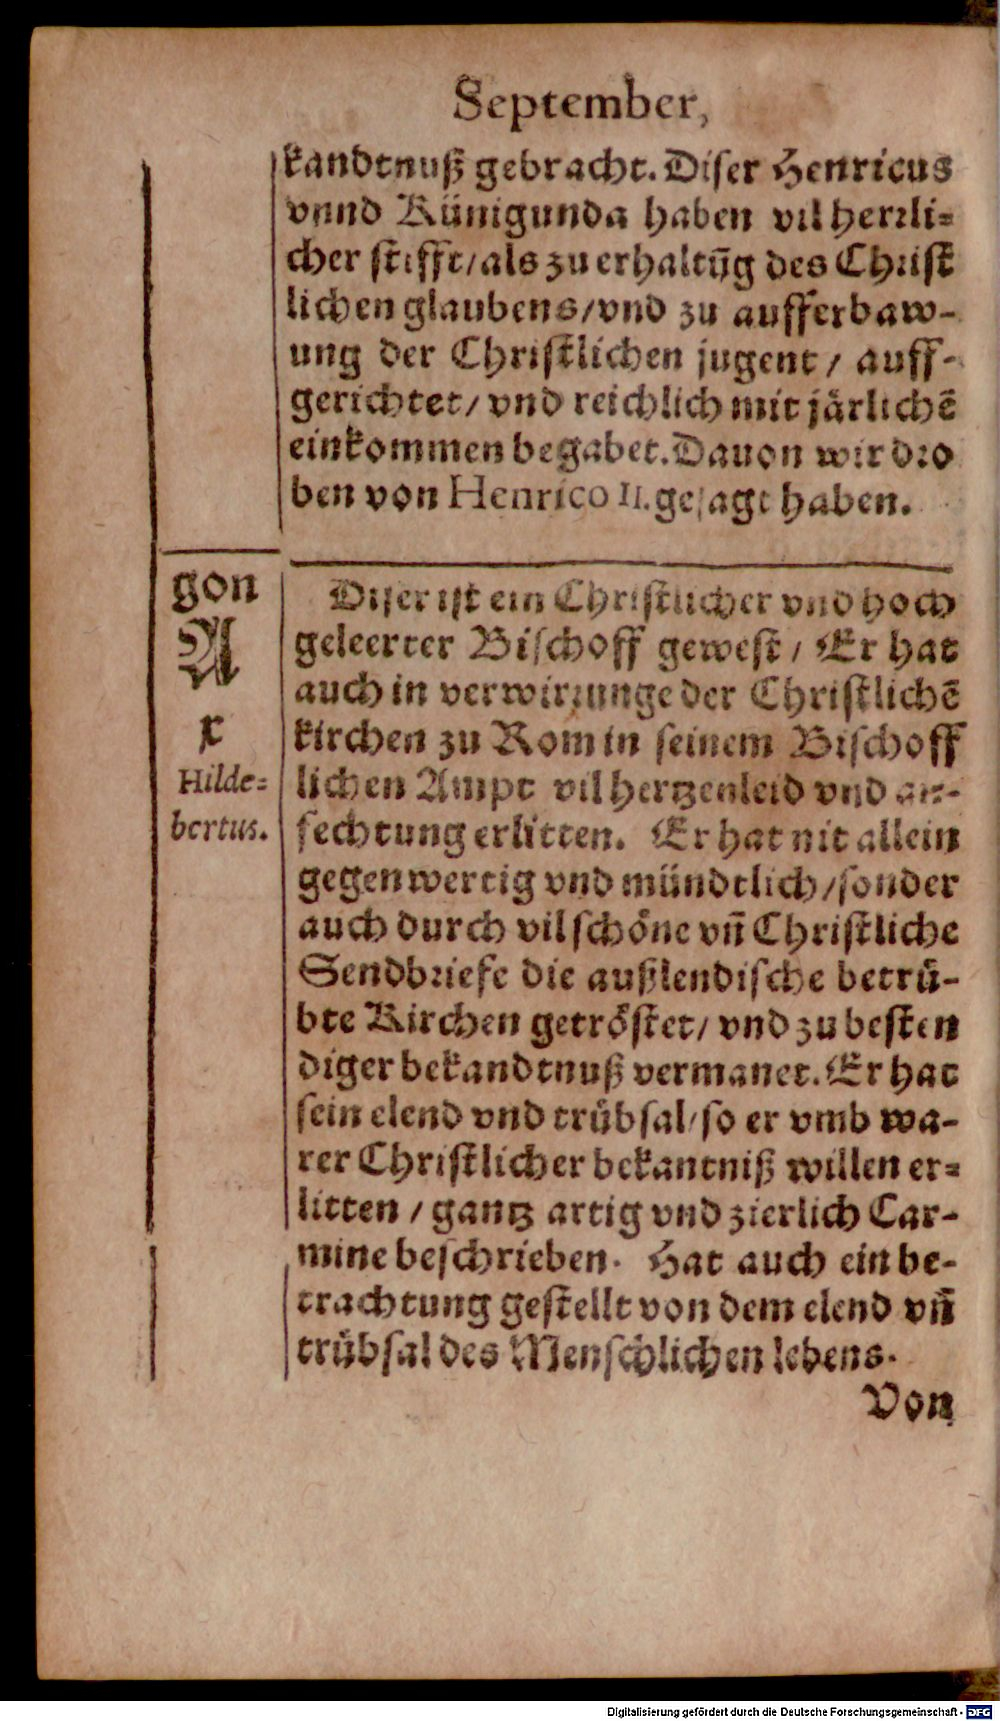 September,
kandtnuß gebracht. Diser Henricus
vnnd Künigunda haben vil herrli=
cher stifft/als zu erhaltũg des Christ
lichen glaubens/vnd zu aufferbaw-
ung der Christlichen jugent / auff-
gerichtet/ vnd reichlich mit järlichẽ
einkommen begabet. Dauon wir dro
ben von Henrico II. gesagt haben.
gon
A
x
Hilde=
bertus.
Diser ist ein Christlicher vnd hoch
geleerter Bischoff gewest / Er hat
auch in verwirrunge der Christlichẽ
kirchen zu Rom in seinem Bischoff
lichen Ampt vil hertzenleid vnd an-
fechtung erlitten. Er hat nit allein
gegenwertig vnd mündtlich/sonder
auch durch vil schöne vñ Christliche
Sendbriefe die außlendische betrü-
bte Kirchen getröstet/ vnd zu besten
diger bekandtnuß vermanet. Er hat
sein elend vnd trübsal/so er vmb wa-
rer Christlicher bekantniß willen er=
litten / gantz artig vnd zierlich Car-
mine beschrieben. Hat auch ein be-
trachtung gestellt von dem elend vñ
trübsal des Menschlichen lebens.
Von
Digitalisierung gefördert durch die Deutsche Forschungsgemeinschaft - DFG